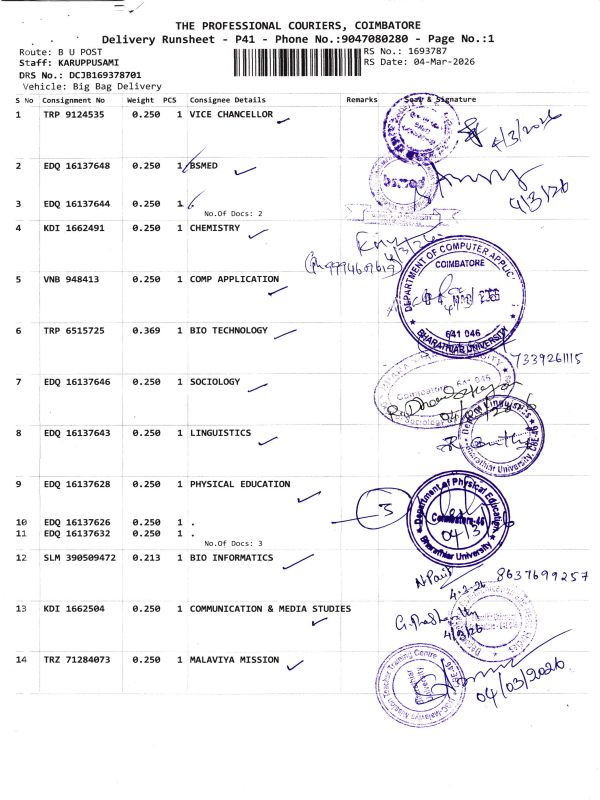 THE PROFESSIONAL COURIERS, COIMBATORE
Delivery Runsheet - P41 - Phone No.:9047080280 - Page No.:1
Route: B U POST
RS No.: 1693787
Staff: KARUPPUSAMI
RS Date: 04-Mar-2026
DRS No.: DCJB169378701
Vehicle: Big Bag Delivery
S No Consignment No Weight PCS Consignee Details Remarks Seal & Signature
1 TRP 9124535 0.250 1 VICE CHANCELLOR
4/3/2026
2 EDQ 16137648 0.250 1 BSMED
4/3/26
3 EDQ 16137644 0.250 1 .
No.Of Docs: 2
4 KDI 1662491 0.250 1 CHEMISTRY
DEPARTMENT OF COMPUTER APPLIC
COIMBATORE
5 VNB 948413 0.250 1 COMP APPLICATION
641 046
BHARATHIAR UNIVERSITY
6 TRP 6515725 0.369 1 BIO TECHNOLOGY
7339261115
7 EDQ 16137646 0.250 1 SOCIOLOGY
Coimbatore 641 046
Sociology
8 EDQ 16137643 0.250 1 LINGUISTICS
Bharathiar University
9 EDQ 16137628 0.250 1 PHYSICAL EDUCATION
3
Department of Physical Education
Coimbatore-46
Bharathiar University
10 EDQ 16137626 0.250 1 .
11 EDQ 16137632 0.250 1 .
No.Of Docs: 3
12 SLM 390509472 0.213 1 BIO INFORMATICS
8637699257
4-3-26
13 KDI 1662504 0.250 1 COMMUNICATION & MEDIA STUDIES
4/3/26
14 TRZ 71284073 0.250 1 MALAVIYA MISSION
04/03/2026